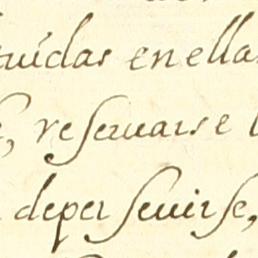 uidas en ella
, reseruarse
deper seuirse,